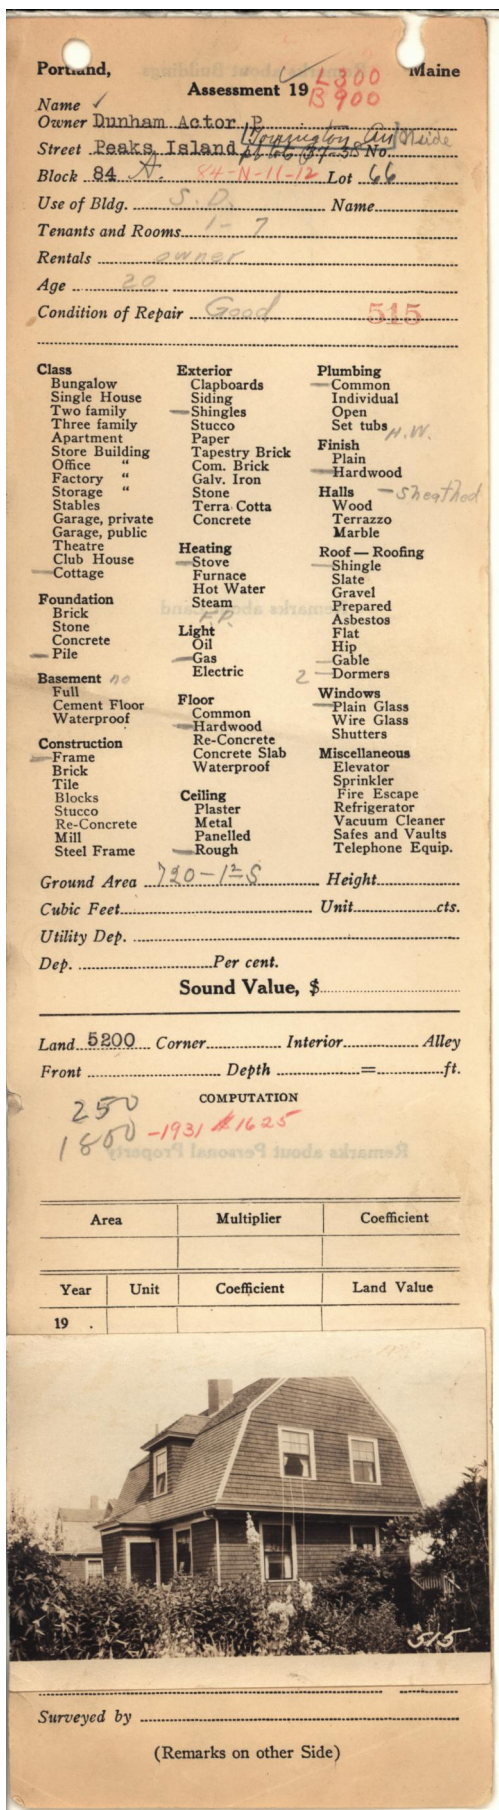 Portland, Maine
Assessment 19 L300
B 900
Name ✓
Owner Dunham Actor P.
Torrington Av N side
Street Peaks Island pt lot 37-38 No.
Block 84 A. 84-N-11-12 Lot 66
Use of Bldg. S.D. Name
Tenants and Rooms 1-7
Rentals owner
Age 20
Condition of Repair Good 515
Class
Bungalow
Single House
Two family
Three family
Apartment
Store Building
Office "
Factory "
Storage "
Stables
Garage, private
Garage, public
Theatre
Club House
Cottage
Foundation
Brick
Stone
Concrete
Pile
Basement no
Full
Cement Floor
Waterproof
Construction
Frame
Brick
Tile
Blocks
Stucco
Re-Concrete
Mill
Steel Frame
Exterior
Clapboards
Siding
Shingles
Stucco
Paper
Tapestry Brick
Com. Brick
Galv. Iron
Stone
Terra Cotta
Concrete
Heating
Stove
Furnace
Hot Water
Steam
F.P.
Light
Oil
Gas
Electric
Floor
Common
Hardwood
Re-Concrete
Concrete Slab
Waterproof
Ceiling
Plaster
Metal
Panelled
Rough
Plumbing
Common
Individual
Open
Set tubs H.W.
Finish
Plain
Hardwood
Halls - sheathed
Wood
Terrazzo
Marble
Roof — Roofing
Shingle
Slate
Gravel
Prepared
Asbestos
Flat
Hip
Gable
2 - Dormers
Windows
Plain Glass
Wire Glass
Shutters
Miscellaneous
Elevator
Sprinkler
Fire Escape
Refrigerator
Vacuum Cleaner
Safes and Vaults
Telephone Equip.
Ground Area 720-1½ S Height
Cubic Feet Unit cts.
Utility Dep.
Dep. Per cent.
Sound Value, $
Land 5200 Corner Interior Alley
Front Depth = ft.
COMPUTATION
250
1800 -1931 $1625
Remarks about Personal Property
Area Multiplier Coefficient
Year Unit Coefficient Land Value
19 .
515
Surveyed by
(Remarks on other Side)